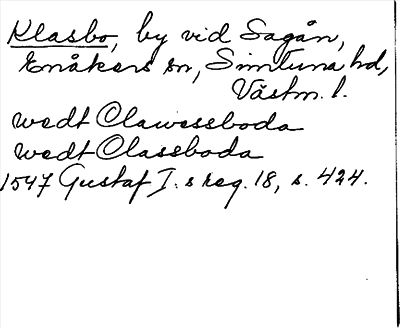 Klasbo, by vid Sagån,
Enåkers sn, Simtuna hd,
Västm. l.
wedt Clawessboda
wedt Classboda
1547 Gustaf I. s reg. 18, s. 424.